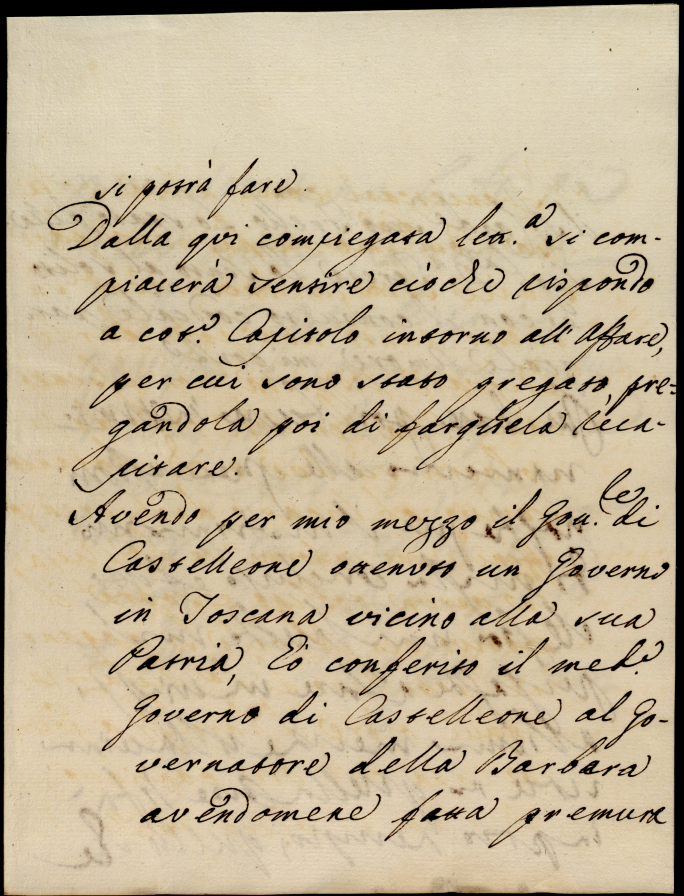 si potrà fare.
Dalla qui compiegata lett.ª si com-
piacerà sentire ciòche rispondo
a cot.º Capitolo intorno all' Affare,
per cui sono stato pregato, pre=
gandola poi di fargliela reca-
pitare.
Avendo per mio mezzo il Gou.le di
Castelleone ottenuto un Governo
in Toscana vicino alla sua
Patria, Eò conferito il med.º
Governo di Castelleone al Go-
vernatore della Barbara
avendomene fatta premura